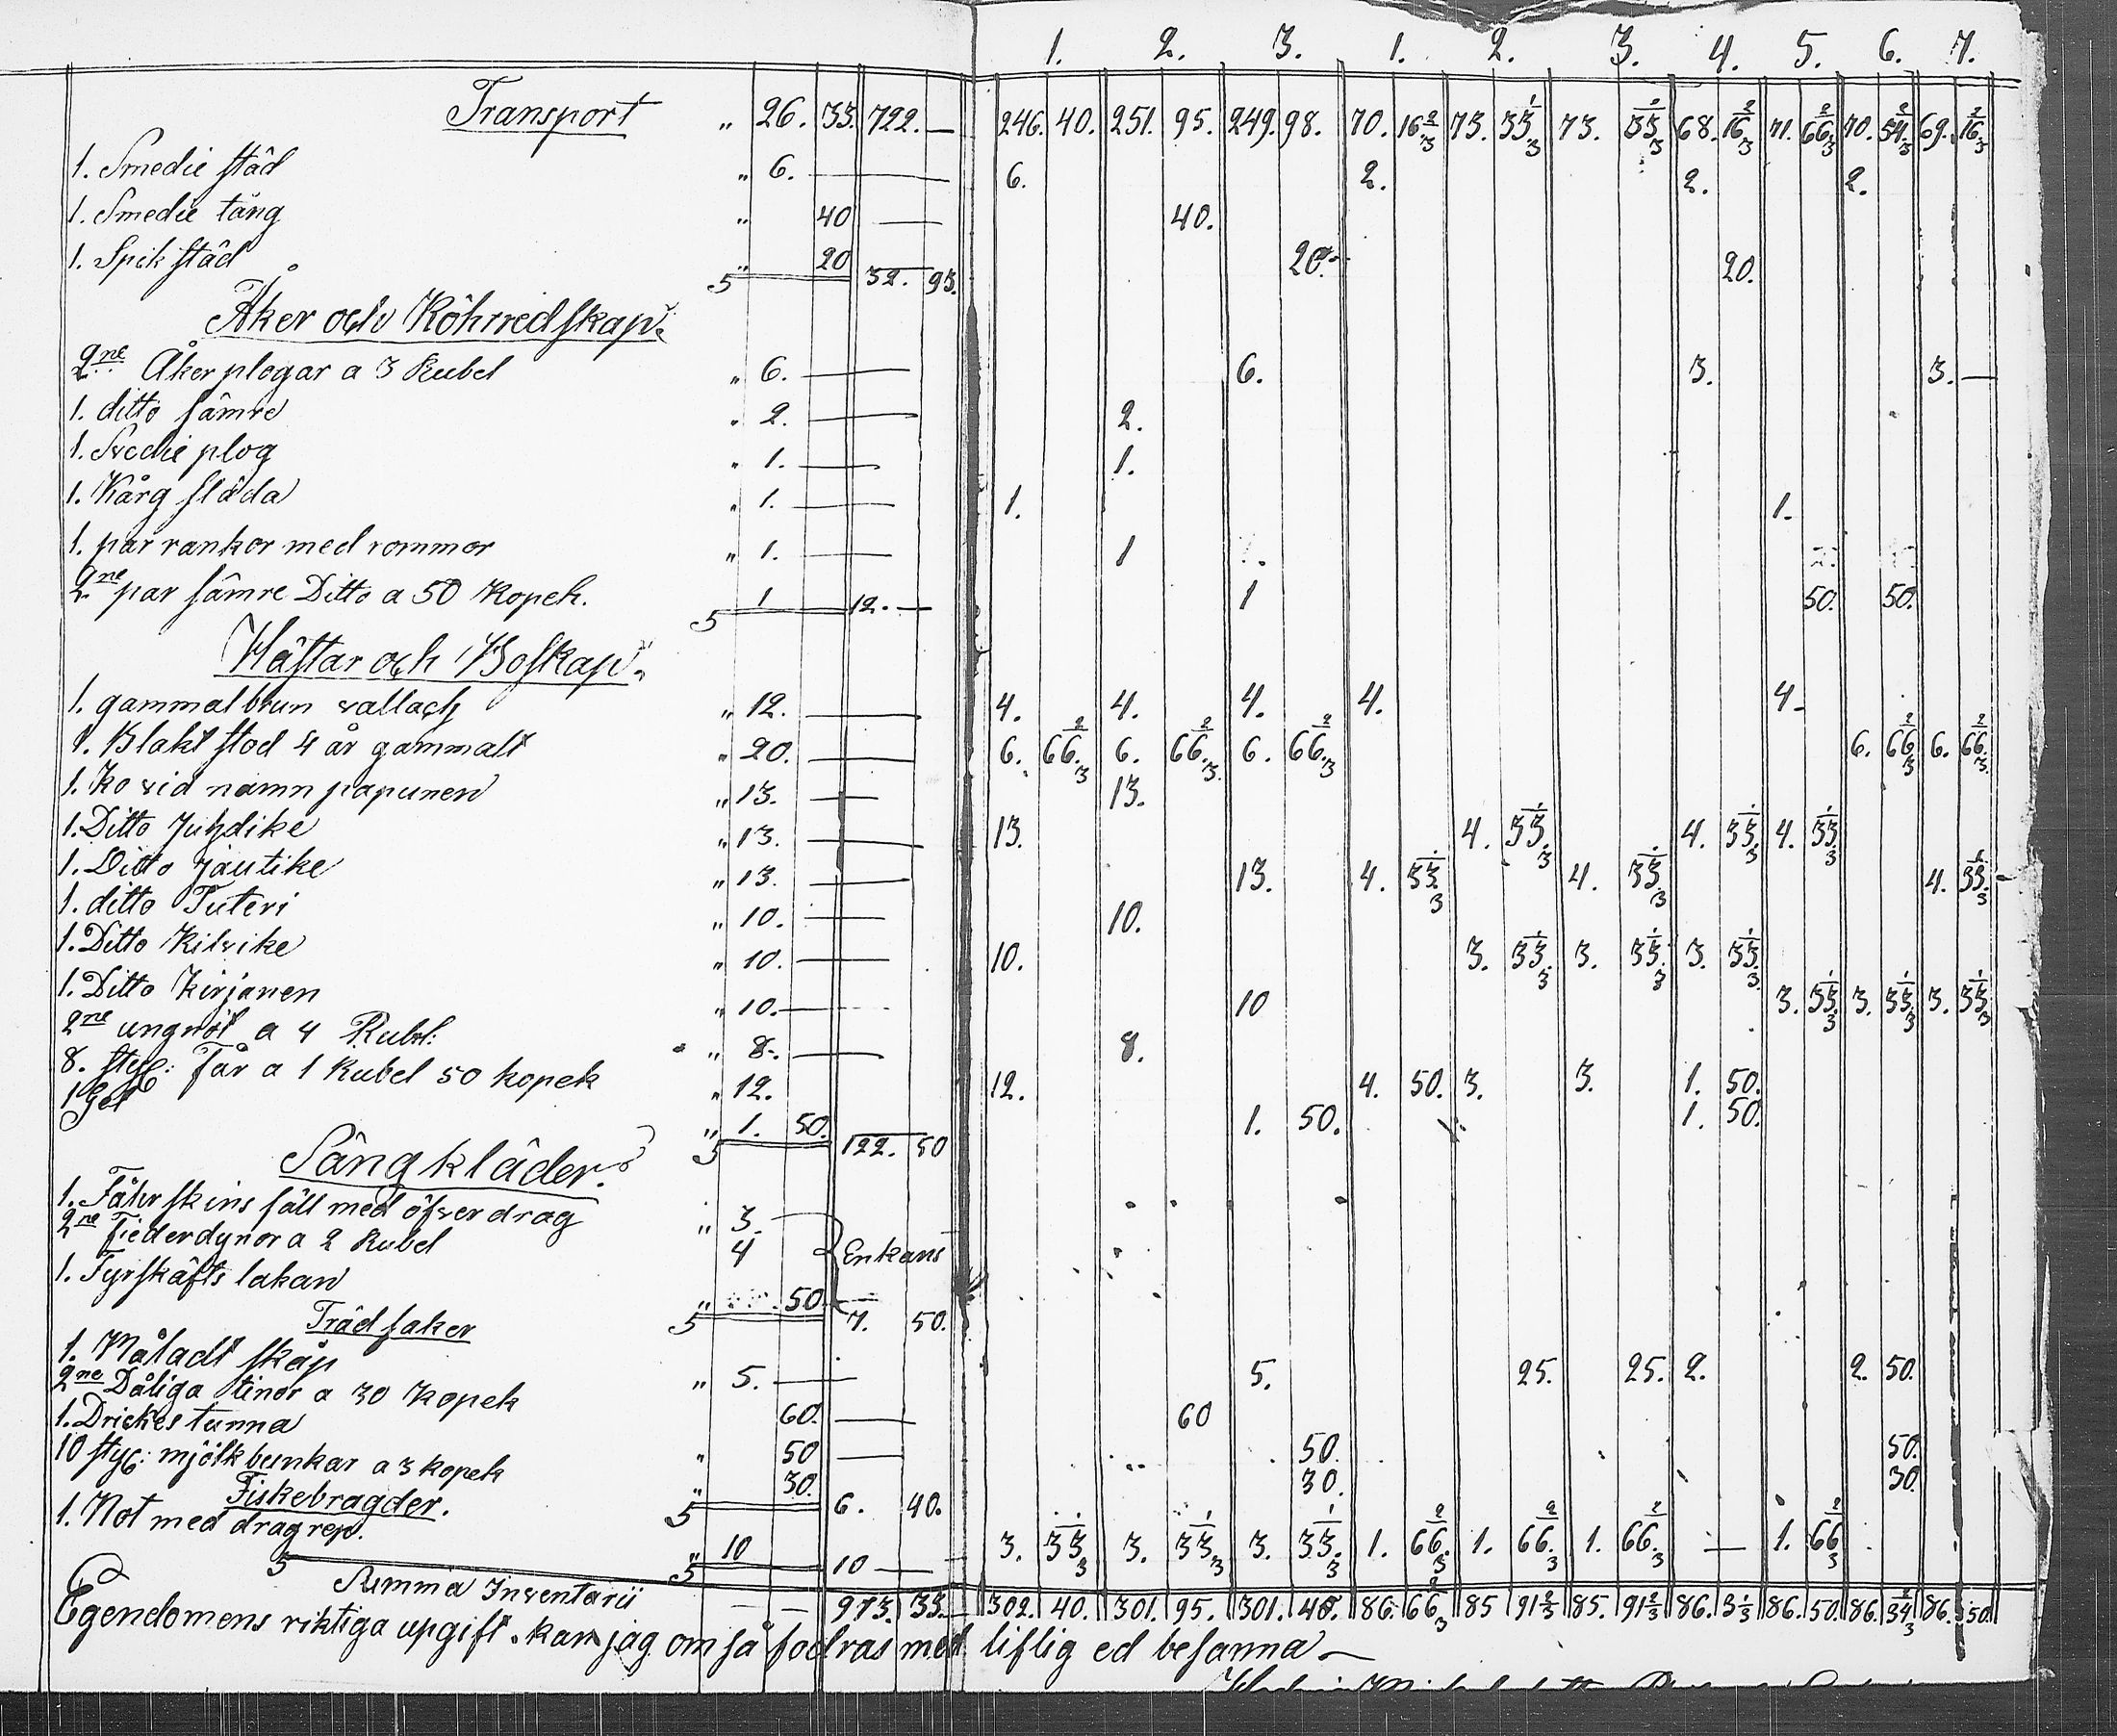 1. 2. 3. 1. 2. 3. 4. 5. 6. 7.
Transport „ 26. 33. 722. — 246. 40. 251. 95. 249. 98. 70. 16 2/3 73. 33 1/3 73. 33 1/3 68. 16 2/3 71. 66 2/3 70. 54 2/3 69. 16 2/3
1. Smedie städ „ 6. — 6. 2. 2. 2.
1. Smedie tång „ 40 — 40.
1. Spik städ „ 20 32. 93. 20. 20.
Åker och Köhrredskap.
2ne Åker plogar a 3 Rubel „ 6. — 6. 3. 3. —
1. ditto sämre „ 2. — 2.
1. Svedie plog „ 1. — 1.
1. Kärg släda „ 1. — 1. 1.
1. par rankor med rommor „ 1. — 1
2ne par sämre Ditto a 50 Kopek. 1 12. — 1 50. 50.
Hästar och Boskap.
1. gammal brun vallach „ 12. — 4. 4. 4. 4. 4.
1. Blakt stod 4 år gammalt „ 20. — 6. 66 2/3 6. 66 2/3 6. 66 2/3 6. 66 2/3 6. 66 2/3
1. Ko vid namn papunen „ 13. — 13.
1. Ditto Juhdike „ 13. — 13. 4. 33 1/3 4. 33 1/3 4. 33 1/3
1. Ditto Jautike „ 13. — 13. 4. 33 1/3 4. 33 1/3 4. 33 1/3
1. ditto Tuteri „ 10. — 10.
1. Ditto Kilvike „ 10. — 10. 3. 33 1/3 3. 33 1/3 3. 33 1/3
1. Ditto Kirjanen „ 10. — 10 3. 33 1/3 3. 33 1/3 3. 33 1/3
2ne ungnöt a 4 Rubl: „ 8. — 8.
8. styc: Får a 1 Rubel 50 kopek „ 12. 12. 4. 50. 3. 3. 1. 50.
1 Get „ 1. 50. 122. 50 1. 50. 1. 50.
Sängkläder.
1. Fåhrskins fäll med öfverdrag „ 3.
2ne Fiederdynor a 2 Rubel 4 Enkans
1. Fyrskäfts lakan „ 50. 7. 50.
Träd saker
1. Måladt skåp „ 5. — 5. 25. 25. 2. 2. 50.
2ne Dåliga tinor a 30 Kopek 60. — 60
1. Drickes tunna „ 50 — 50. 50.
10 styc: mjölk bunkar a 3 kopek „ 30. 6. 40. 30. 30.
Fiskebragder.
1. Not med dragrep. „ 10 10 — 3. 33 1/3 3. 33 1/3 3. 33 1/3 1. 66 2/3 1. 66 2/3 1. 66 2/3 — 1. 66 2/3
Summa Inventarii — — 973. 33. 302. 40. 301. 95. 301. 48. 86. 66 2/3 85 91 2/3 85. 91 2/3 86. 3 1/3 86. 50. 86. 34 2/3 86. 50.
Egendomens riktiga upgift. kan jag om så fodras med liflig ed besanna